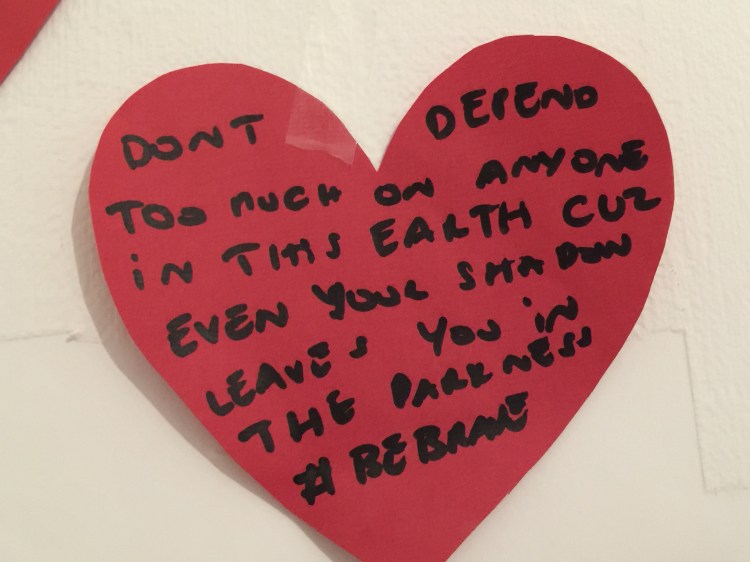 DONT DEPEND
TOO MUCH ON ANYONE
iN THIS EARTH CUZ
EVEN YOUR SHADOW
LEAVES YOU iN
THE DARKNESS
#BEBRAVE